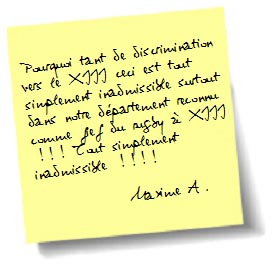 Pourquoi tant de discrimination
vers le XIII ceci est tout
simplement inadmissible surtout
dans notre département reconnu
comme fief du rugby à XIII
!!! Tout simplement
inadmissible !!!!
Maxime A.